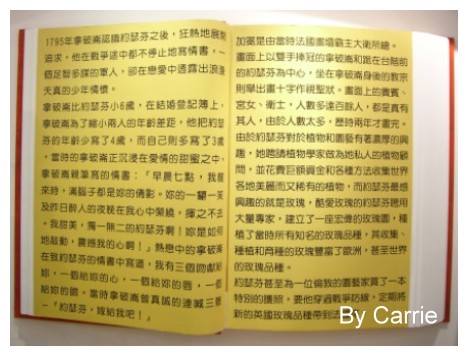 1795年拿破崙認識約瑟芬之後，狂熱地展開
追求，他在戰爭途中都不停止地寫情書，一
個足智多謀的軍人，卻在戀愛中透露出浪漫
天真的少年情懷。
拿破崙比約瑟芬小6歲，在結婚登記簿上，
拿破崙為了縮小兩人的年齡差距，他把約瑟
芬的年齡少寫了4歲，而自己則多寫了3歲
，當時的拿破崙正沉浸在愛情的甜蜜之中，
拿破崙親筆寫的情書：「早晨七點，我醒
來時，滿腦子都是妳的倩影。妳的一顰一笑
及昨日醉人的夜晚在我心中縈繞，揮之不去
。我甜美，獨一無二的約瑟芬啊！妳是如何
地鼓動，震撼我的心啊！」熱戀中的拿破崙
在致約瑟芬的情書中寫道，我有三個吻獻給
妳，一個給妳的心，一個給妳的唇，一個
給妳的眼。當時拿破崙曾真誠的連喊三聲
，「約瑟芬，嫁給我吧！」
加冕是由當時法國畫壇霸主大衛所繪。
畫面上以雙手捧冠的拿破崙和跪在台階前
的約瑟芬為中心，坐在拿破崙身後的教宗
則舉出畫十字作祝聖狀。畫面上的貴賓、
宮女、衛士，人數多達百餘人，都是真有
其人，由於人數太多，歷時兩年才畫完。
由於約瑟芬對於植物和園藝有著濃厚的興
趣，她聘請植物學家做為她私人的植物顧
問，並花費巨額資金和各種方法收集世界
各地美麗而又稀有的植物，而約瑟芬最感
興趣的就是玫瑰，酷愛玫瑰的約瑟芬聘用
大量專家，建立了一座宏偉的玫瑰園，種
植了當時所有知名的玫瑰品種，其收集、
種植和育種的玫瑰豐富了歐洲，甚至世界
的玫瑰品種。
約瑟芬甚至為一位倫敦的園藝家買了一本
特別的護照，要他穿過戰爭防線，定期將
新的英國玫瑰品種帶到法
By Carrie